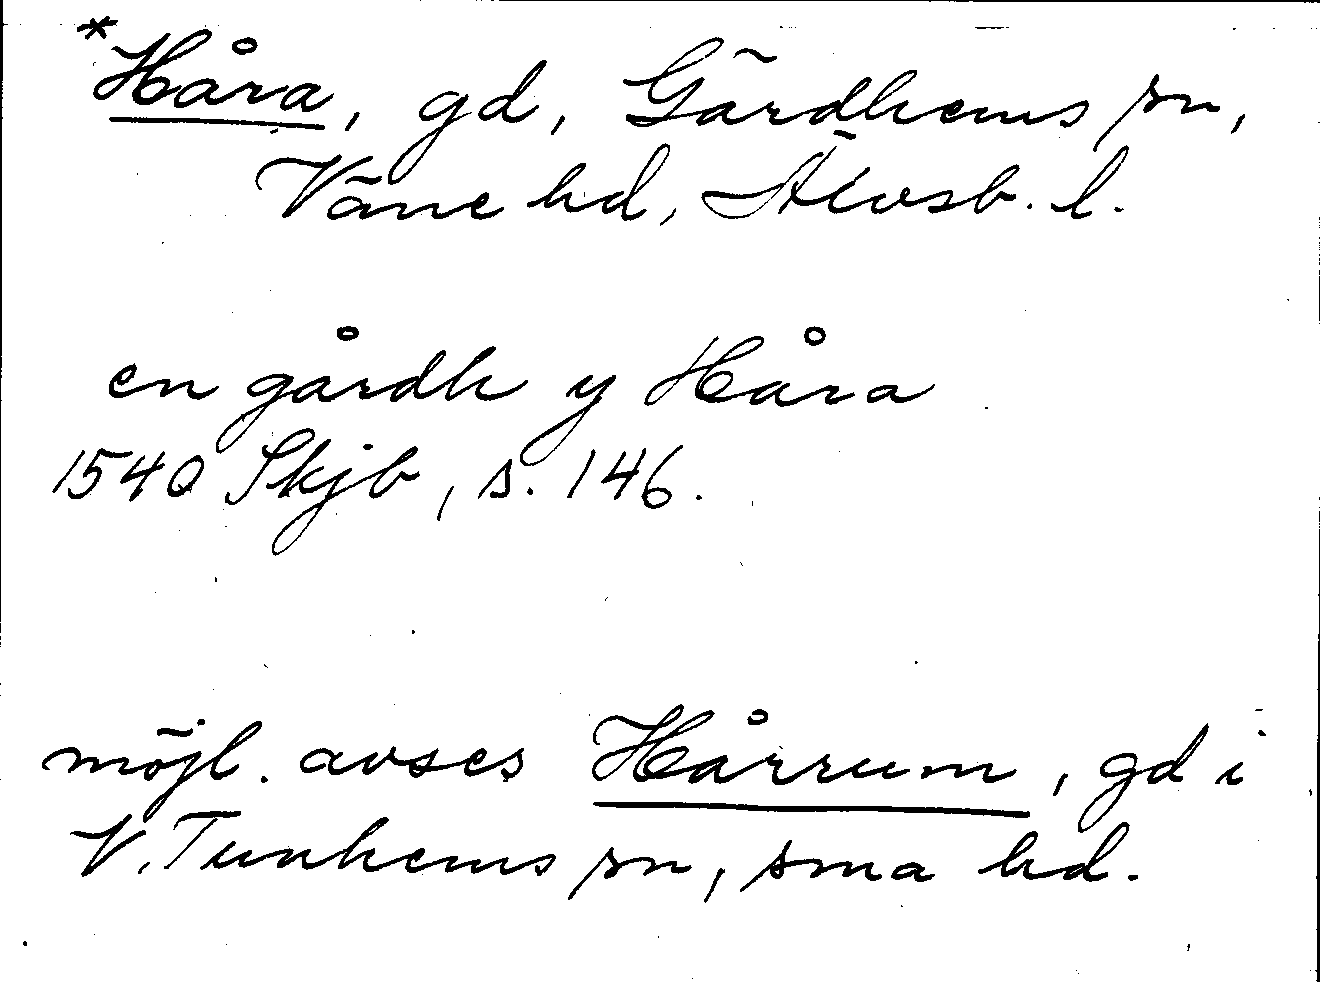 *Håra, gd, Gärdhems sn,
Väne hd, Älvsb. l.
en gårdh y Håra
1540 Skjb, s. 146.
möjl. avses Hårrum, gd i
V. Tunhems sn, sma hd.